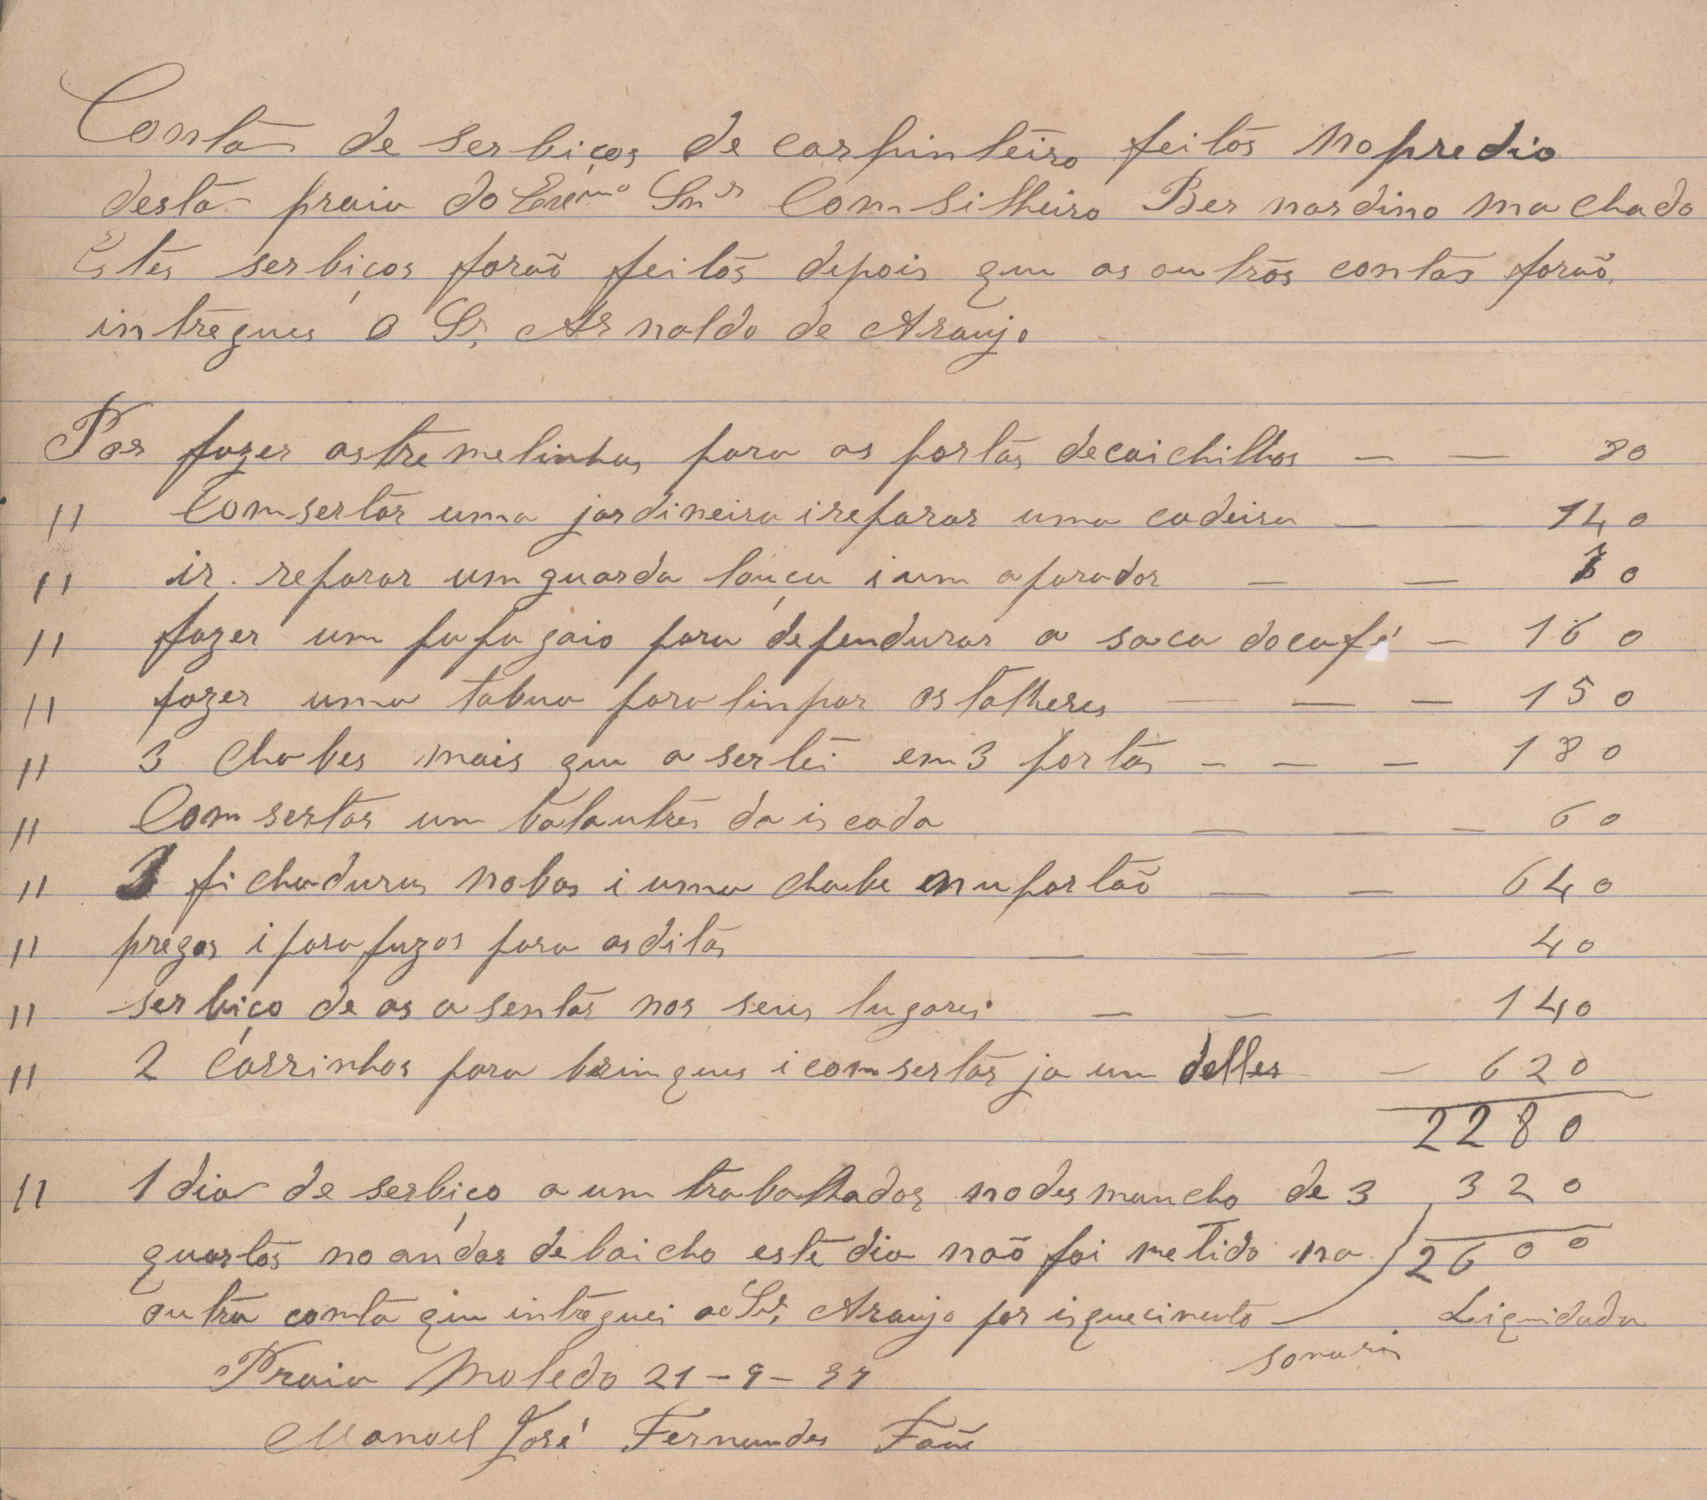 Conta de serbiços de carpinteiro feitos no predio
desta praia do Exmo Snr Comsilheiro Bernardino machado
Estes serbiços forão feitos depois que as outras contas forão
intregues o Sr, Arnaldo de Araujo
Por fazer as tremelinhas para as portas de caichilhos — — 80
" Comsertar uma jardineira i reparar uma cadeira — — 140
" ir. reparar um guarda louça i um aparador — — 70
" fazer um papagaio para dependurar a saca do café — 160
" fazer uma tabua para linpar os talheres — — — 150
" 3 chabes mais que asertei em 3 portas — — — 180
" Comsertar um balautres da iscada — — — 60
" 3 fichaduras nobas i uma chabe nu portão — — 640
" pregos i parafuzos para as ditas — — — 40
" serbiço de as asentar nos seus lugares — — 140
" 2 carrinhos para brinques i comsertar ja um delles — 620
2280
" 1 dia de serbiço a um trabalhador no desmancho de 3 320
quartos no andar debaicho este dia não foi metido na 2600
outra comta que intreguei aó Sr, Araujo por isquecimento — Liquidada
Praia Moledo 21-9-37
Manoel José Fernandes